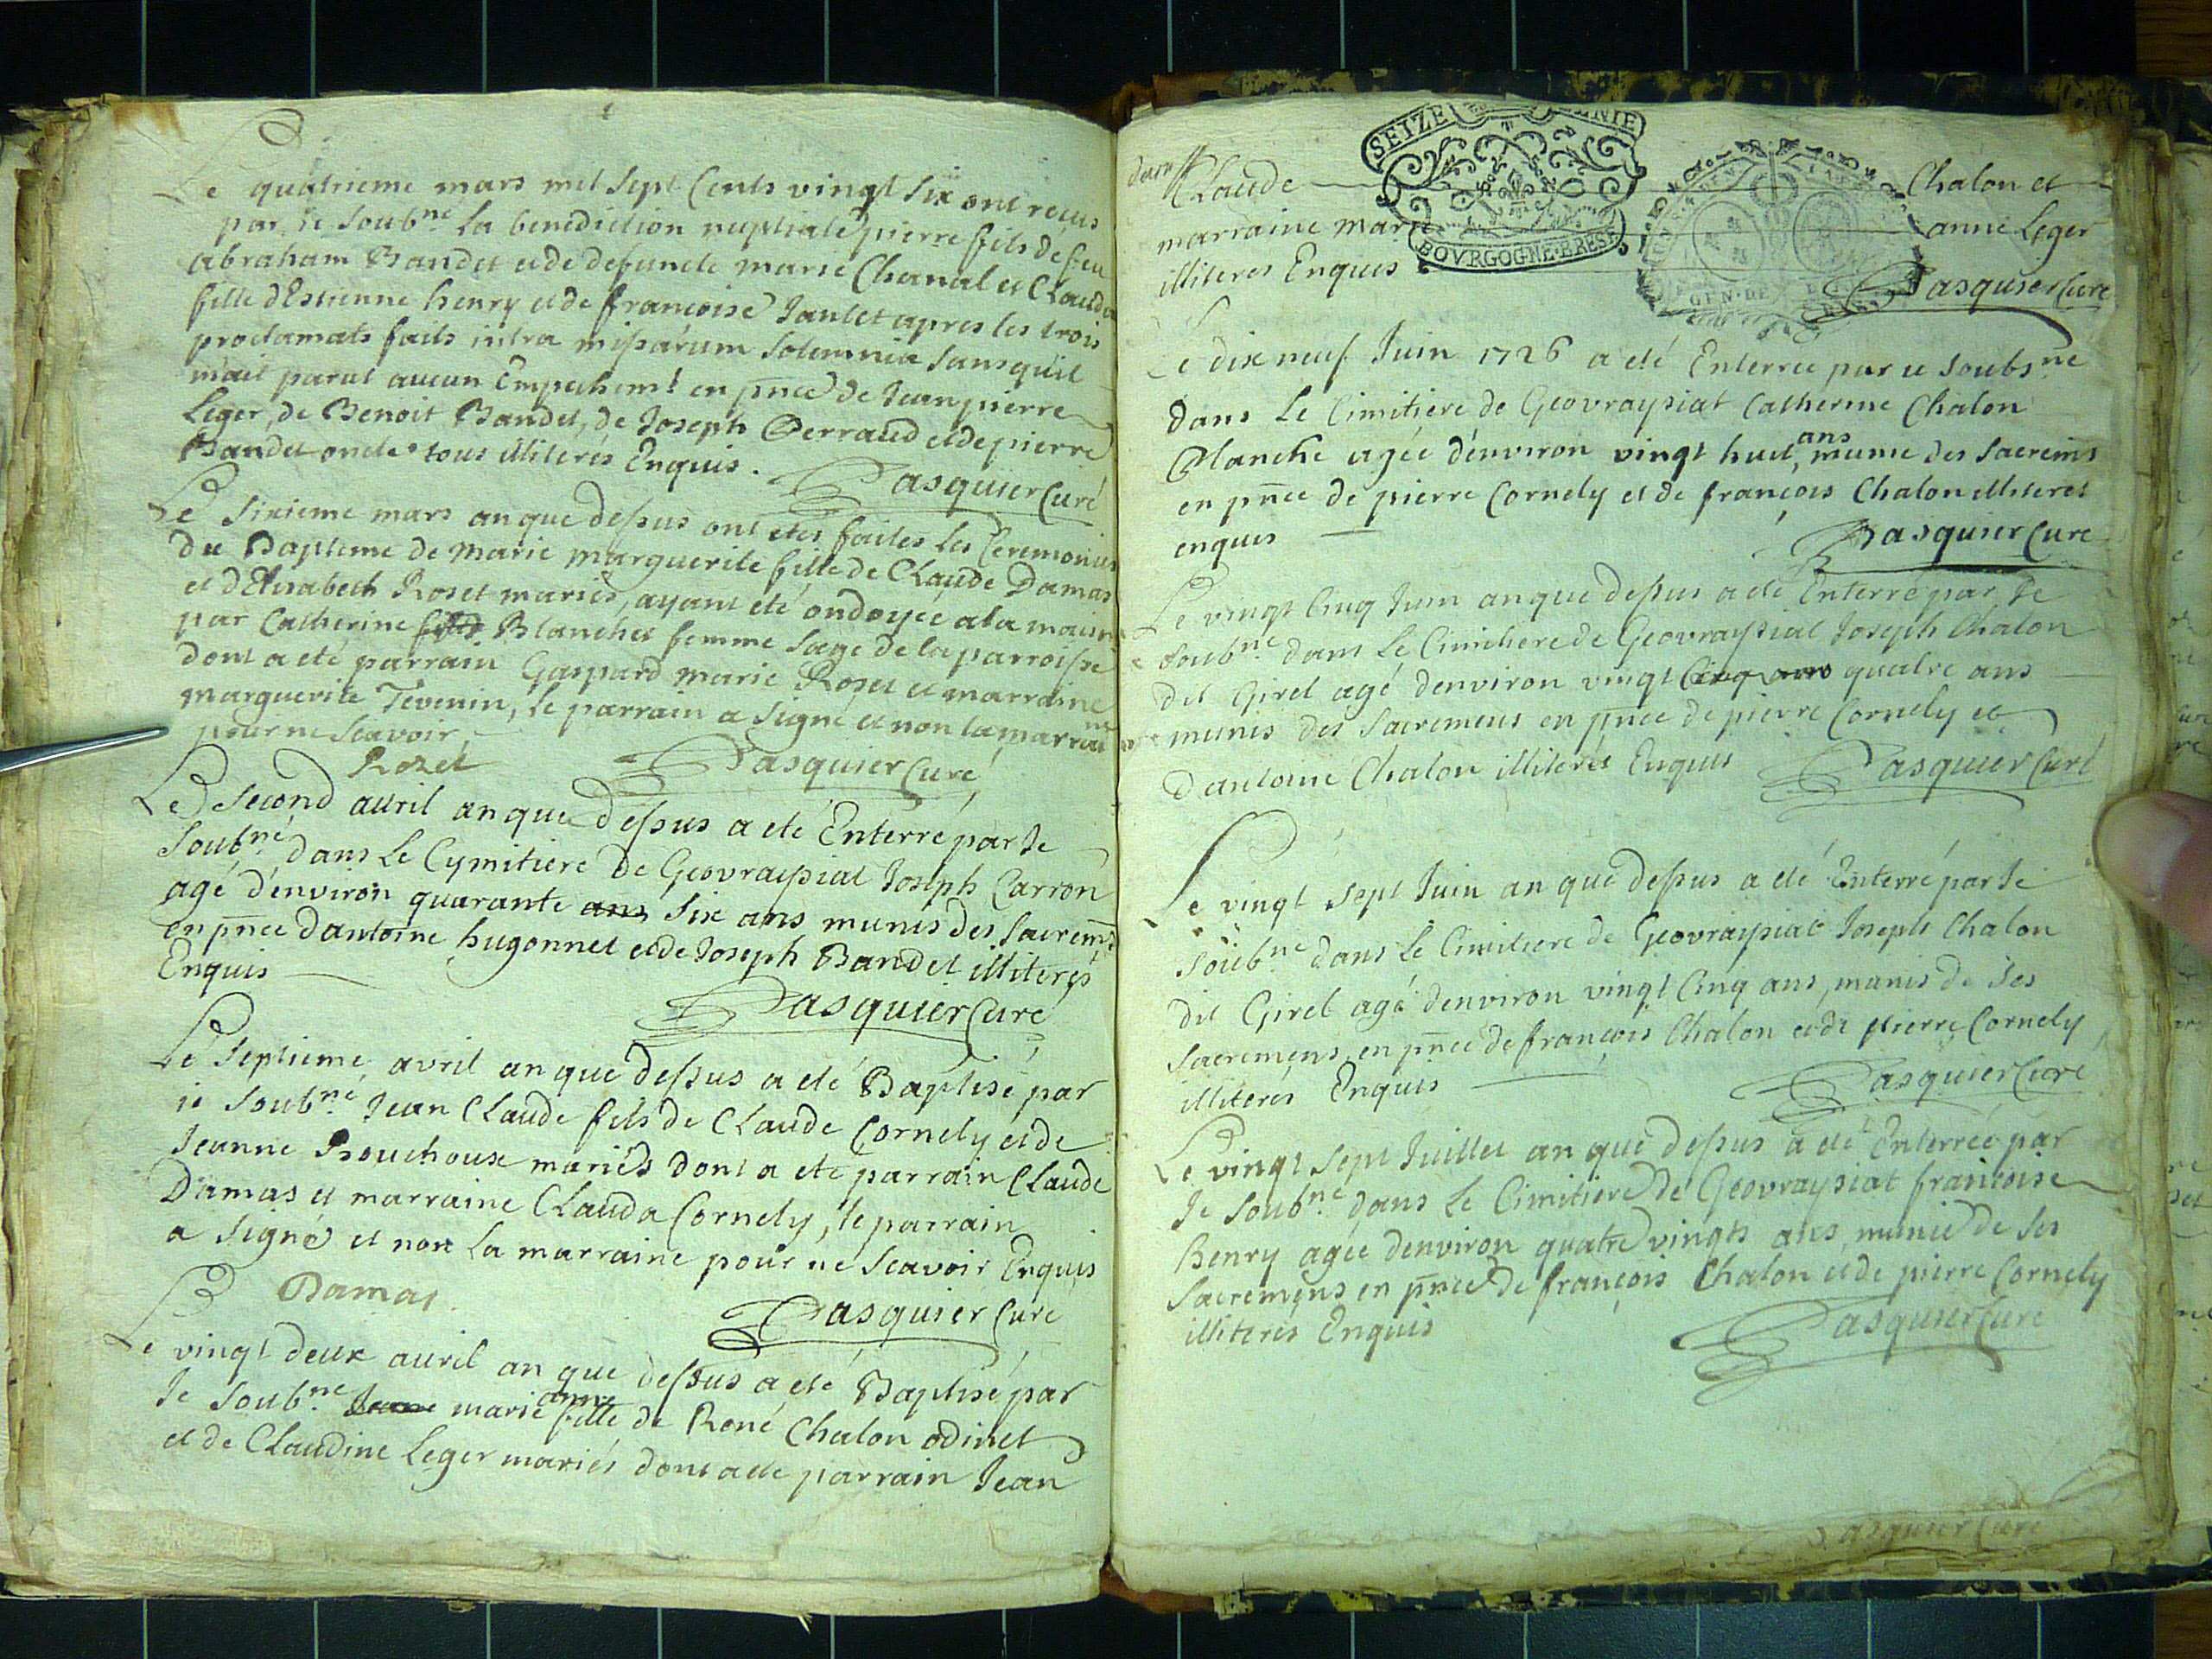 Le quatrieme mars mil sept Cents vingt six ont recus
par Je soubné La benediction nuptiale pierre fils de feu
abraham Bandet et de defuncte marie Chanal et Clauda
fille d'Estienne henry et de francoise Janlet apres les trois
proclamats faits intra missarum solemnia sans qu'il
m'ait parut aucun Empechemt en pnce de Jean pierre
Leger, de Benoit Bandet, de Joseph Perraud et de pierre
Bandet oncle tous illiterés Enquis.
Pasquier Curé
Le sixieme mars an que dessus ont etes faites les Ceremonies
du Bapteme de marie marguerite fille de Claude Damas
et d'Elisabeth Rozet mariés, ayant eté ondoyée a la maison
par Catherine Blanchet femme sage de la parroisse
dont a eté parrain Gaspard marie Rozet et marraine
marguerite Tevenin, le parrain a signé et non la marraine
pour ne scavoir
Rozet Pasquier Curé
Le second auril an que dessus a eté Enterré par Je
soubné dans Le Cymitiere de Geovraissiat Joseph Carron
agé d'environ quarante ans six ans munis des sacremts
en pnce d'antoine hugonnet et de Joseph Bandet illiterés
Enquis
Pasquier Curé
Le septieme avril an que dessus a eté Baptisé par
je soubné Jean Claude fils de Claude Cornely et de
Jeanne Bouchoux mariés dont a eté parrain Claude
Damas et marraine Clauda Cornely, le parrain
a signé et non la marraine pour ne scavoir Enquis
Damas Pasquier Curé
Le vingt deux auril an que dessus a eté Baptisé par
Je soubné Jeane marie anne fille de René Chalon odinet
et de Claudine Leger mariés dont a eté parrain Jean
SEIZE
BOVRGOGNE·BRESSE
GEN·DE
Claude Chalon et
marraine marie anne Leger
illiteres Enquis
Pasquier Curé
Le dix neuf Juin 1726 a eté Enterrée par je soubsné
dans Le Cimitiere de Geovraysiat Catherine Chalon
Blanche agée d'environ vingt huit ans, munie des sacremts
en pnce de pierre Cornely et de françois Chalon illiterés
enquis
Pasquier Curé
Le vingt Cinq Juin an que dessus a eté Enterré par Je
soubné dans Le Cimitiere de Geovraysiat Joseph Chalon
dit Girel agé d'environ vingt Cinq ans quatre ans
munis des sacremens en pnce de pierre Cornely et
d'antoine Chalon illiterés Enquis Pasquier Curé
Le vingt sept Juin an que dessus a eté Enterré par Je
soubné dans Le Cimitiere de Geovraysiat Joseph Chalon
dit Girel agé d'environ vingt Cinq ans, munis de ses
sacremens en pnce de francois Chalon et de pierre Cornely
illiterés Enquis Pasquier Curé
Le vingt sept Juillet an que dessus a eté Enterrée par
Je soubné dans Le Cimitiere de Geovraysiat francoise
Henry agée d'environ quatre vingts ans, munie de ses
sacremens en pnce de françois Chalon et de pierre Cornely
illiterés Enquis Pasquier Curé
Pasquier Curé